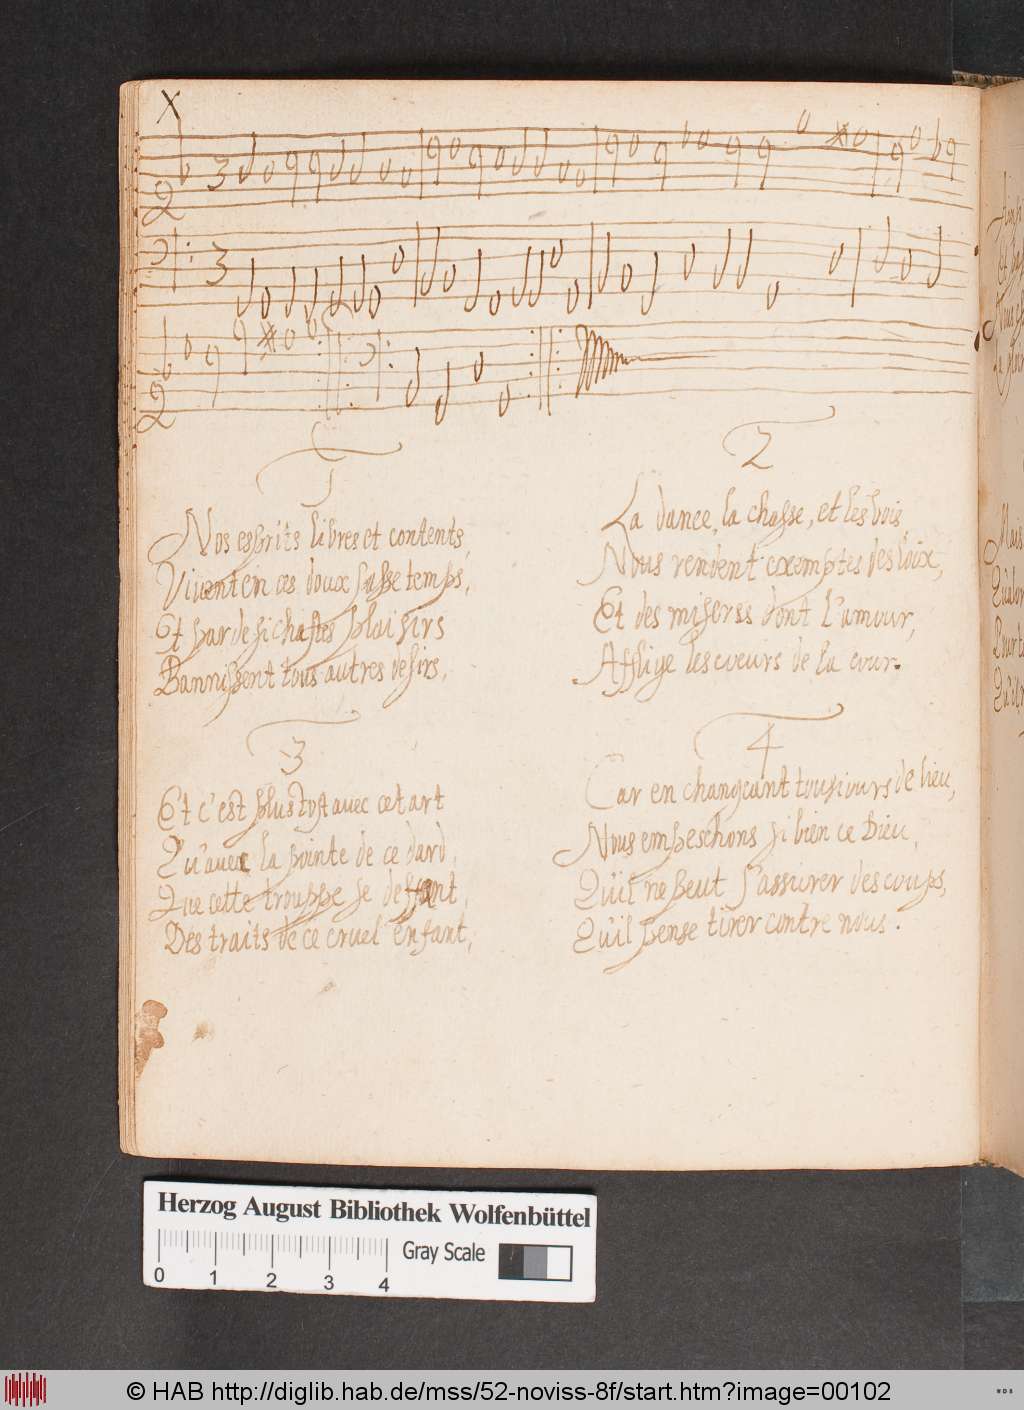 X
3
3
1
Nos esprits libres et contents,
Vivent en ces doux passe temps,
Et par de si chastes plaisirs
Bannissent tous autres desirs,
2
La dance, la chasse, et les bois
Nous rendent exemptes des loix,
Et des miserss dont l'amour,
Afflige les coeurs de la cour.
3
Et c'est plus tost avec cet art
Qu'avec la pointe de ce dard,
Que cette trouppe se deffent,
Des traits de ce cruel Enfant,
4
Car en changeant tousiours de lieu,
Nous empeschons si bien ce Dieu,
Qu'il ne peut s'assurer des coups,
Qu'il pense tirer contre nous.
Mais
Herzog August Bibliothek Wolfenbüttel
0 1 2 3 4
Gray Scale
© HAB http://diglib.hab.de/mss/52-noviss-8f/start.htm?image=00102